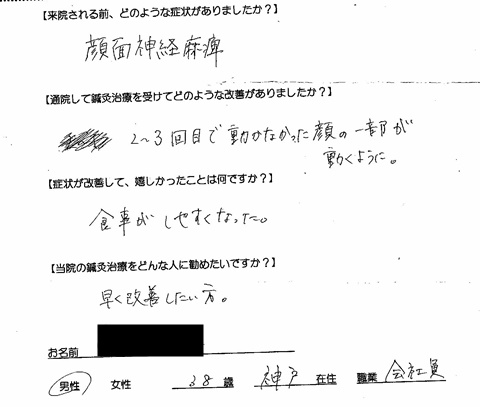 【来院される前、どのような症状がありましたか?】
顔面神経麻痺
【通院して鍼灸治療を受けてどのような改善がありましたか?】
2~3回目で動かなかった顔の一部が
動くように。
【症状が改善して、嬉しかったことは何ですか?】
食事がしやすくなった。
【当院の鍼灸治療をどんな人に勧めたいですか?】
早く改善したい方。
お名前
男性 女性 38歳 神戸在住 職業 会社員